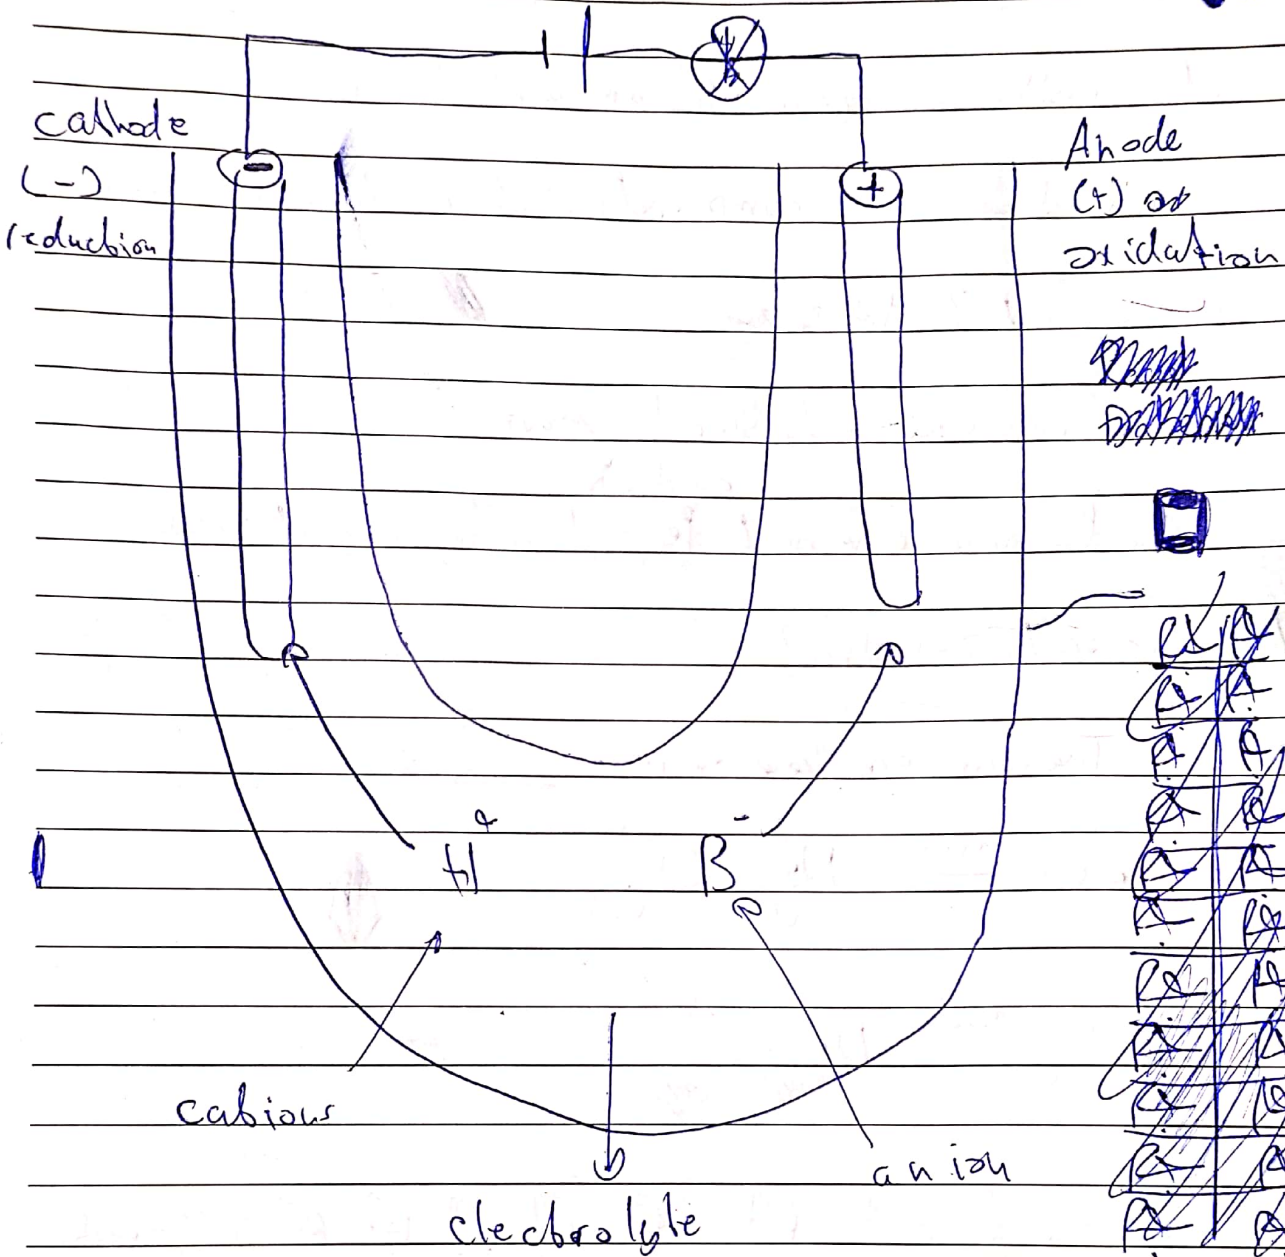 cathode
(-)
reduction
-
+
Anode
(+)
oxidation
H+
B-
cations
anion
electrolyte